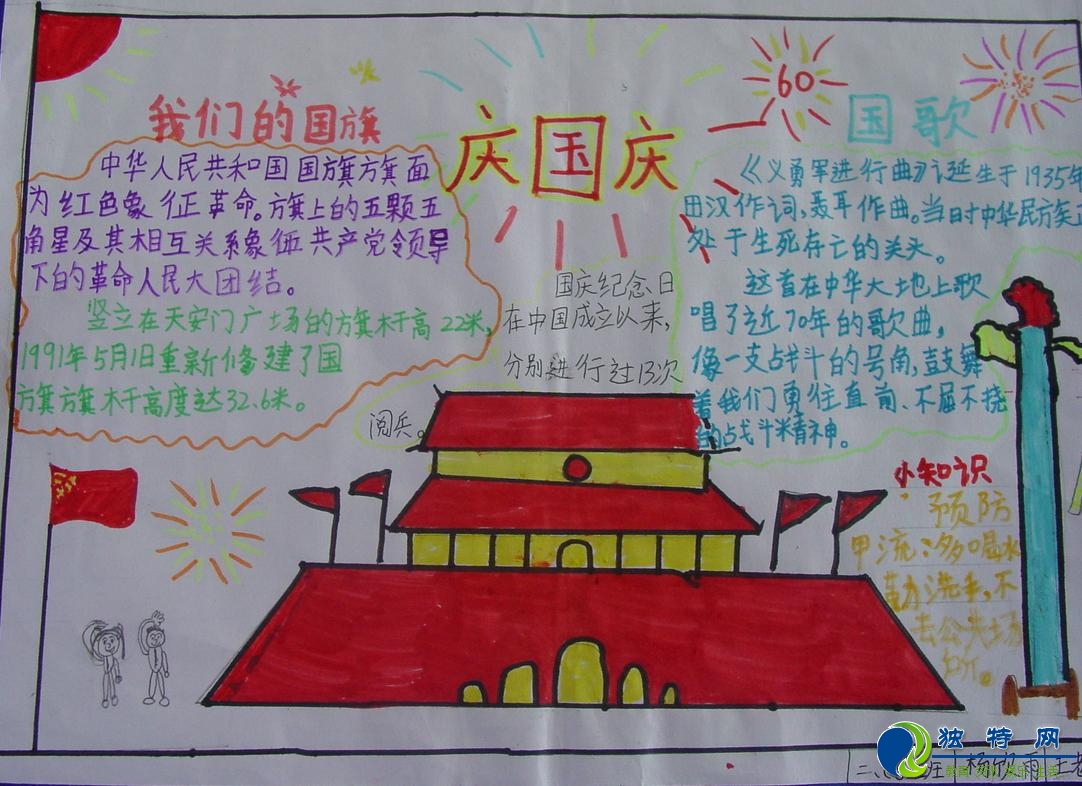 我们的国旗
中华人民共和国国旗旗面
为红色象征革命。旗上的五颗五
角星及其相互关系象征共产党领导
下的革命人民大团结。
竖立在天安门广场的旗杆高22米,
1991年5月1日重新修建了国
旗旗杆高度达32.6米。
庆国庆
国庆纪念日
在中国成立以来,
分别进行过13次
阅兵。
60
国歌
《义勇军进行曲》诞生于1935年
田汉作词,聂耳作曲。当时中华民族正
处于生死存亡的关头。
这首在中华大地上歌
唱了近70年的歌曲,
像一支战斗的号角,鼓舞
着我们勇往直前、不屈不挠
的战斗精神。
小知识
预防
甲流:多喝水
勤洗手,不
去公共场
所。
独特网
班 杨欣雨 王老